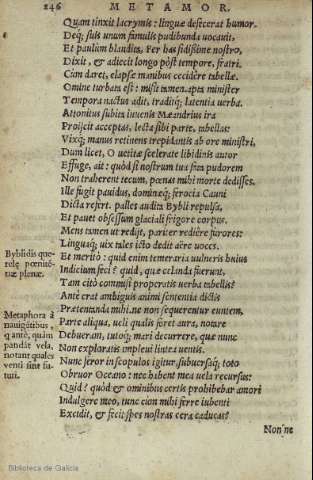 246 METAMOR.
Quam tinxit lacrymis: linguæ defecerat humor.
Deq; suis unum famulis pudibunda uocauit,
Et paulùm blandita, Fer has fidißime nostro,
Dixit, & adiecit longo pòst tempore, fratri.
Cùm daret, elapsæ manibus cecidêre tabellæ.
Omine turbata est: misit tamen. apta minister
Tempora nactus adit, traditq; latentia uerba.
Attonitus subita iuuenis Mæandrius ira
Proijcit acceptas, lecta sibi parte, tabellas:
Vixq; manus retinens trepidantis ab ore ministri,
Dum licet, O uetitæ scelerate libidinis autor
Effuge, ait: quòd si nostrum tua fata pudorem
Non traherent secum, pœnas mihi morte dedisses.
Ille fugit pauidus, dominæq; ferocia Cauni
Dicta refert. palles audita Bybli repulsa,
Et pauet obsessum glaciali frigore corpus.
Mens tamen ut redijt, pariter rediêre furores:
Linguaq; uix tales icto dedit aëre uoces.
Byblidis que-
relę pœnitē-
tiæ plenæ.
Et meritò: quid enim temeraria uulneris huius
Indicium feci? quid, quæ celanda fuerunt,
Tam citò commisi properatis uerba tabellis?
Antè erat ambiguis animi sententia dictis
Prætentanda mihi. ne non sequeretur euntem,
Metaphora à
nauigātibus,
q antè, quàm
pandāt vela,
notant quales
venti sint fu-
turi.
Parte aliqua, ueli qualis foret aura, notare
Debueram, tutoq; mari decurrere, quæ nunc
Non exploratis impleui lintea uentis.
Nunc feror in scopulos igitur, subuersaq; toto
Obruor Oceano: nec habent mea uela recursus:
Quid? quòd & ominibus certis prohibebar amori
Indulgere meo, tunc cùm mihi ferre iubenti
Excidit, & fecit spes nostras cera caducas?
Non'ne
Biblioteca de Galicia